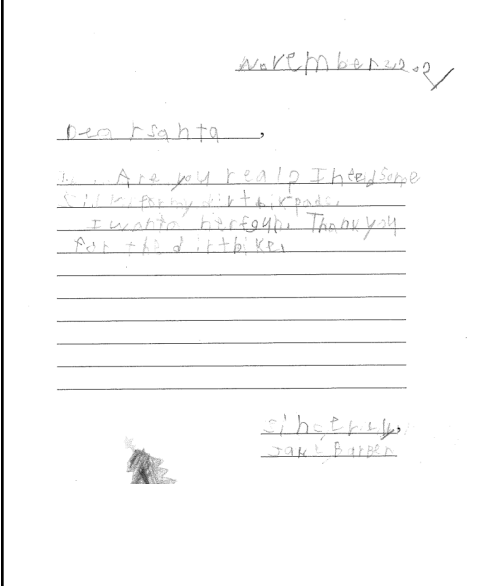 November
Dear Santa,
Are you real? I need some
for my dirt bike
I want a nerf gun. Thank you
for the dirtbike
Sincerely,
Barber